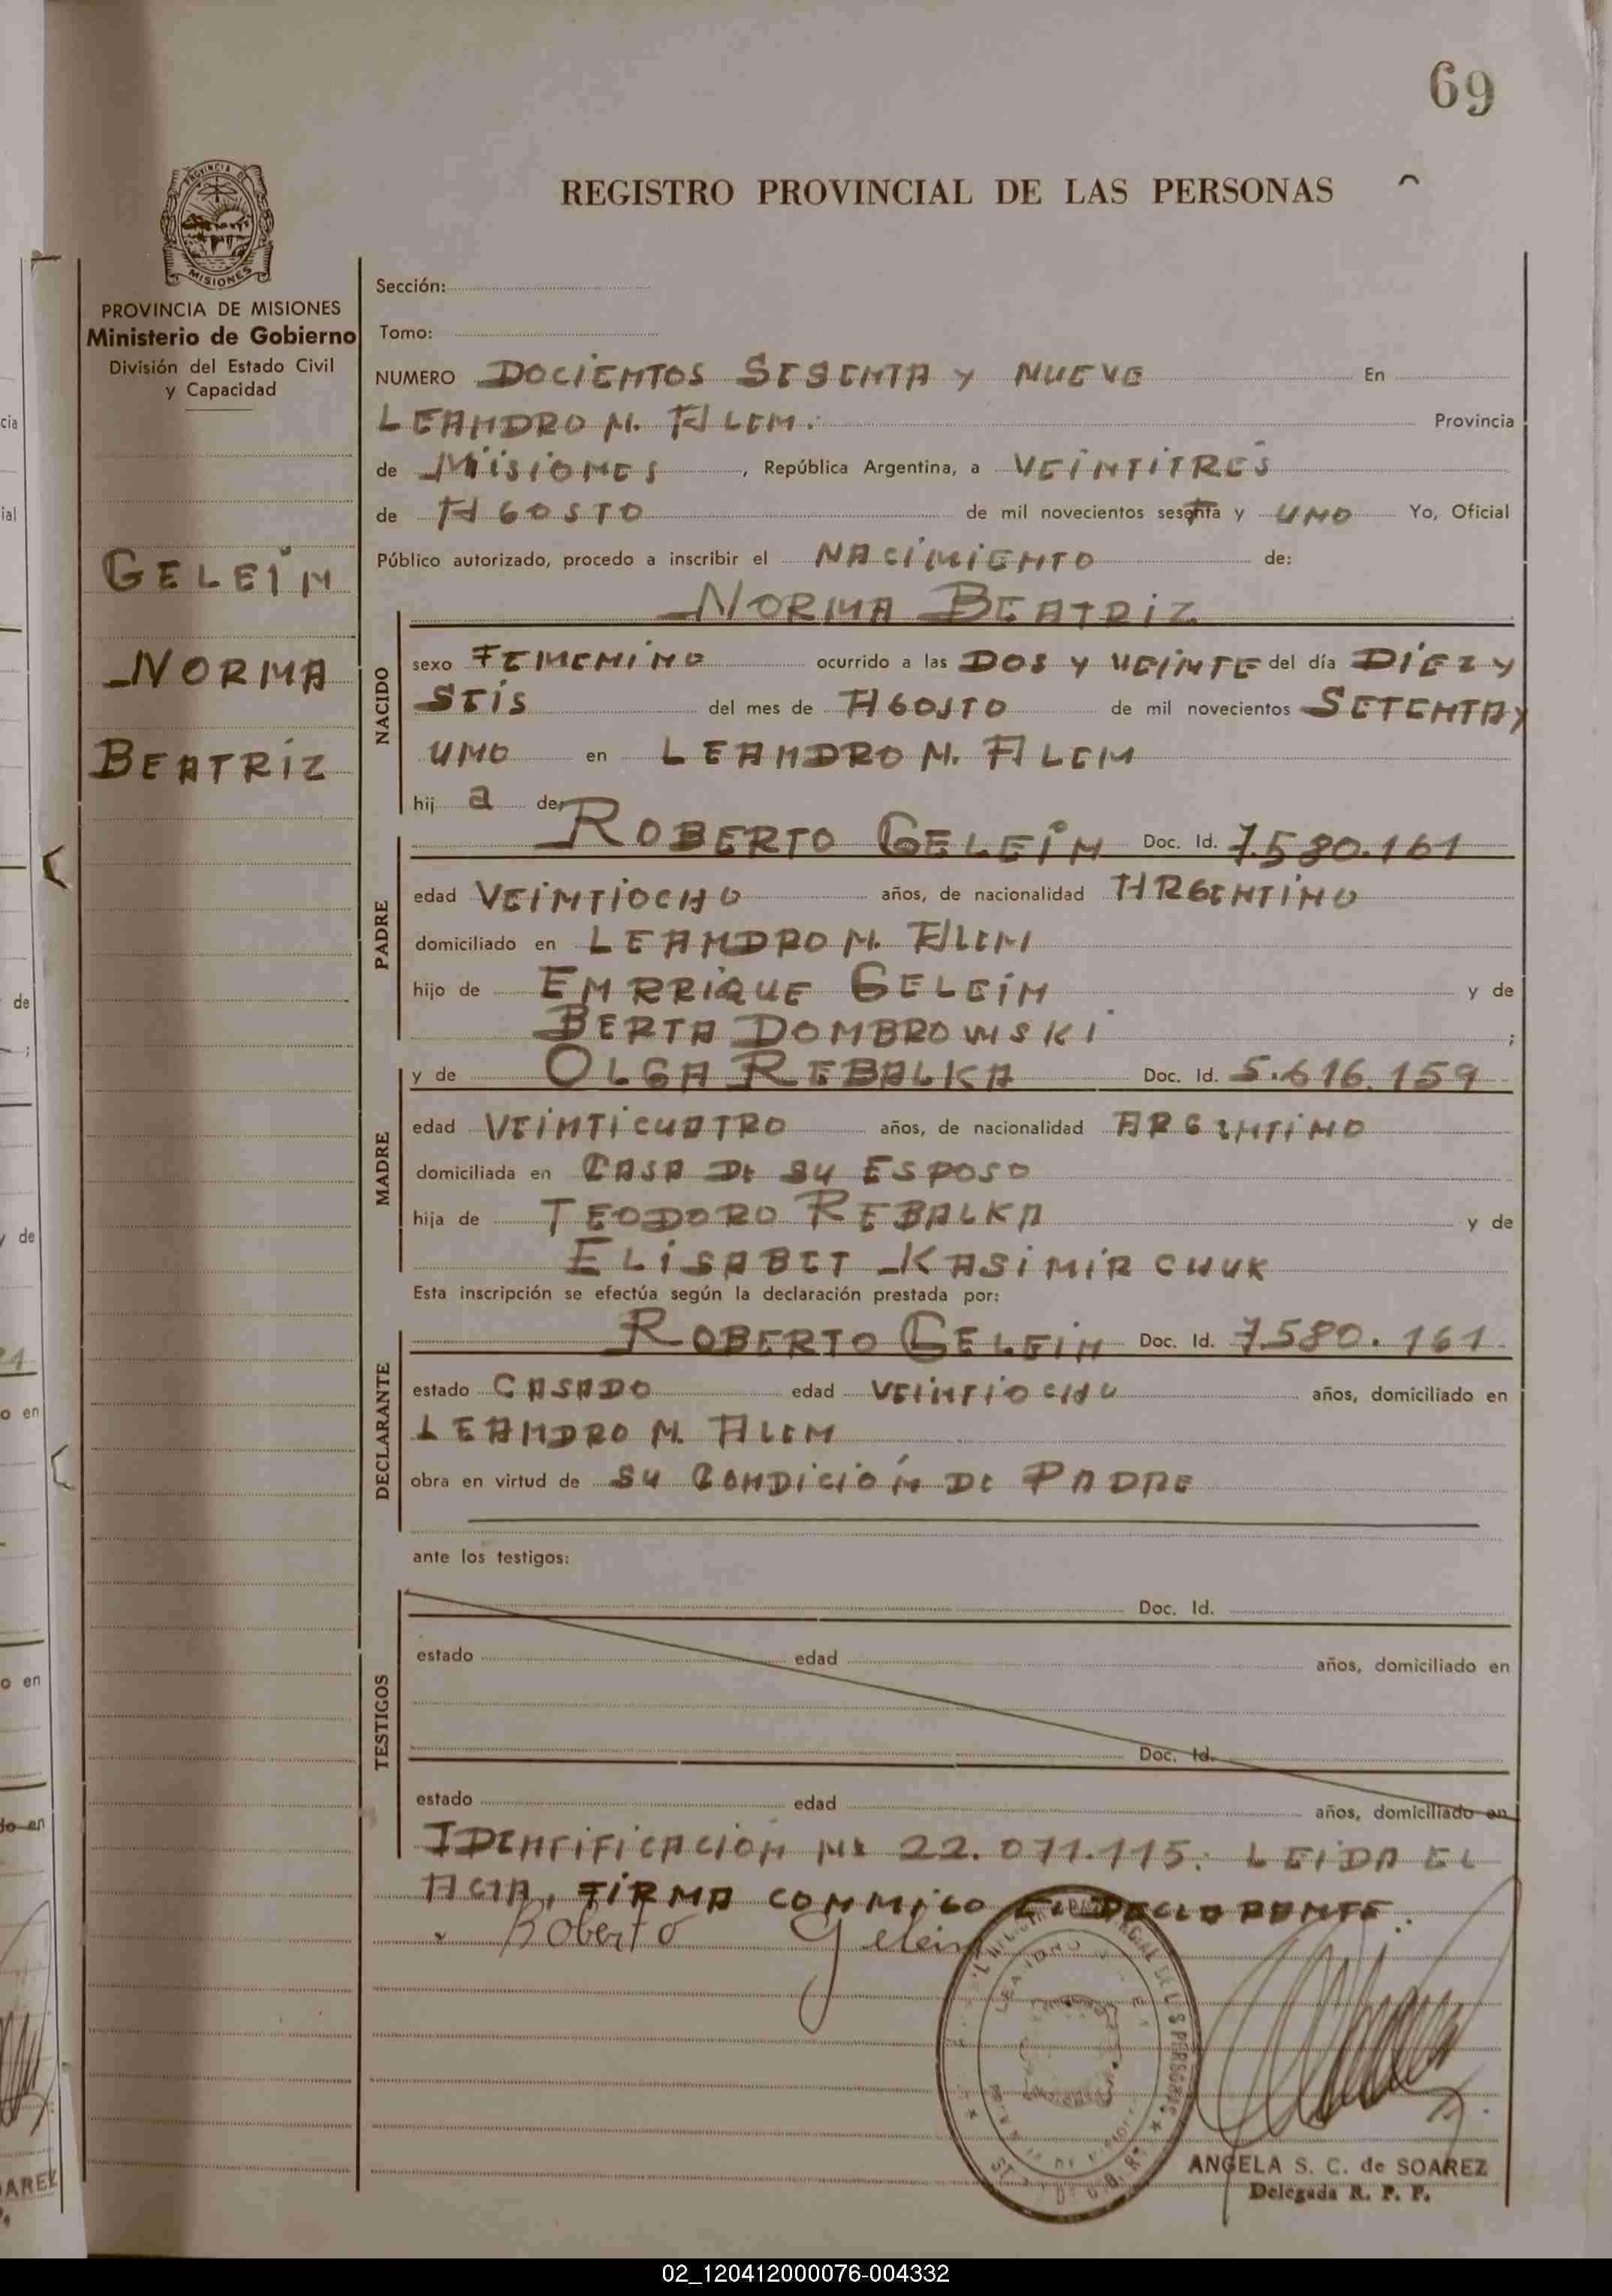 69
REGISTRO PROVINCIAL DE LAS PERSONAS
PROVINCIA DE
MISIONES
PROVINCIA DE MISIONES
Ministerio de Gobierno
División del Estado Civil
y Capacidad
GELEIN
NORMA
BEATRIZ
Sección:
Tomo:
NUMERO DOCIENTOS SESENTA Y NUEVE En
LEANDRO N. ALEM. Provincia
de MISIONES, República Argentina, a VEINTITRES
de AGOSTO de mil novecientos sesenta y UNO Yo, Oficial
Público autorizado, procedo a inscribir el NACIMIENTO de:
NORMA BEATRIZ
NACIDO
sexo FEMENINO ocurrido a las DOS Y VEINTE del día DIEZ Y
SEIS del mes de AGOSTO de mil novecientos SETENTA Y
UNO en LEANDRO N. ALEM
hij a de
ROBERTO GELEIN Doc. Id. 7.580.161
PADRE
edad VEINTIOCHO años, de nacionalidad ARGENTINO
domiciliado en LEANDRO N. ALEM
hijo de ENRRIQUE GELEIN y de
BERTA DOMBROWSKI ;
y de OLGA REBALKA Doc. Id. 5.616.159
MADRE
edad VEINTICUATRO años, de nacionalidad ARGENTINO
domiciliada en CASA DE SU ESPOSO
hija de TEODORO REBALKA y de
ELISABET KASIMIRCHUK
Esta inscripción se efectúa según la declaración prestada por:
ROBERTO GELEIN Doc. Id. 7.580.161
DECLARANTE
estado CASADO edad VEINTIOCHO años, domiciliado en
LEANDRO N. ALEM
obra en virtud de SU CONDICIÓN DE PADRE
ante los testigos:
TESTIGOS
Doc. Id.
estado edad años, domiciliado en
Doc. Id.
estado edad años, domiciliado en
IDENTIFICACION Nº 22.071.115. LEIDA EL
ACTA, FIRMA CONMIGO EL DECLARANTE.
Roberto Gelein
ANGELA S. C. de SOAREZ
Delegada R. P. P.
02_120412000076-004332